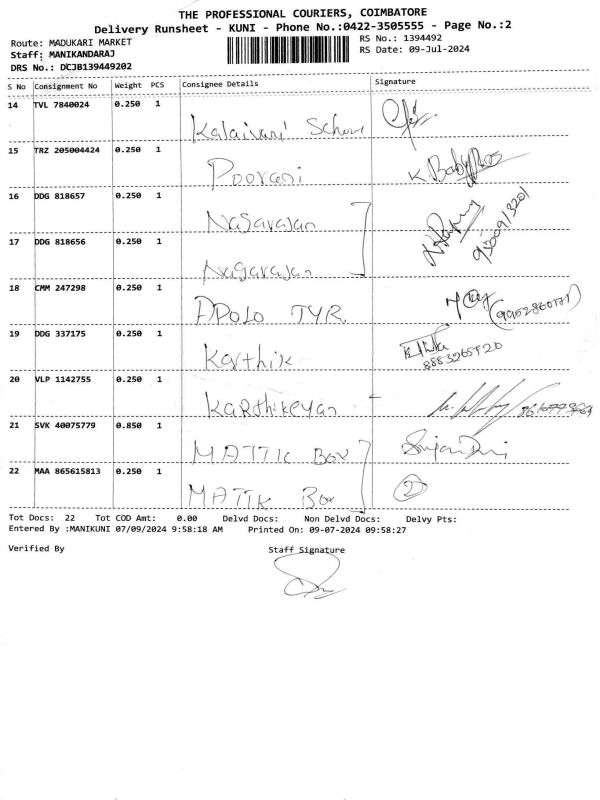 THE PROFESSIONAL COURIERS, COIMBATORE
Delivery Runsheet - KUNI - Phone No.:0422-3505555 - Page No.:2
Route: MADUKARI MARKET RS No.: 1394492
Staff: MANIKANDARAJ RS Date: 09-Jul-2024
DRS No.: DCJB139449202
S No Consignment No Weight PCS Consignee Details Signature
14 TVL 7840024 0.250 1
Kalaivani
15 TRZ 205004424 0.250 1
Poorani K. Baby
16 DDG 818657 0.250 1
Nagarajan
17 DDG 818656 0.250 1
Nagarajan
18 CMM 247298 0.250 1
APOLO TYR
19 DDG 337175 0.250 1
Karthik
20 VLP 1142755 0.250 1
KARthikeyan
21 SVK 40075779 0.850 1
MATTIK Box
22 MAA 865615813 0.250 1 2
MATTK Box
Tot Docs: 22 Tot COD Amt: 0.00 Delvd Docs: Non Delvd Docs: Delvy Pts:
Entered By :MANIKUNI 07/09/2024 9:58:18 AM Printed On: 09-07-2024 09:58:27
Verified By Staff Signature